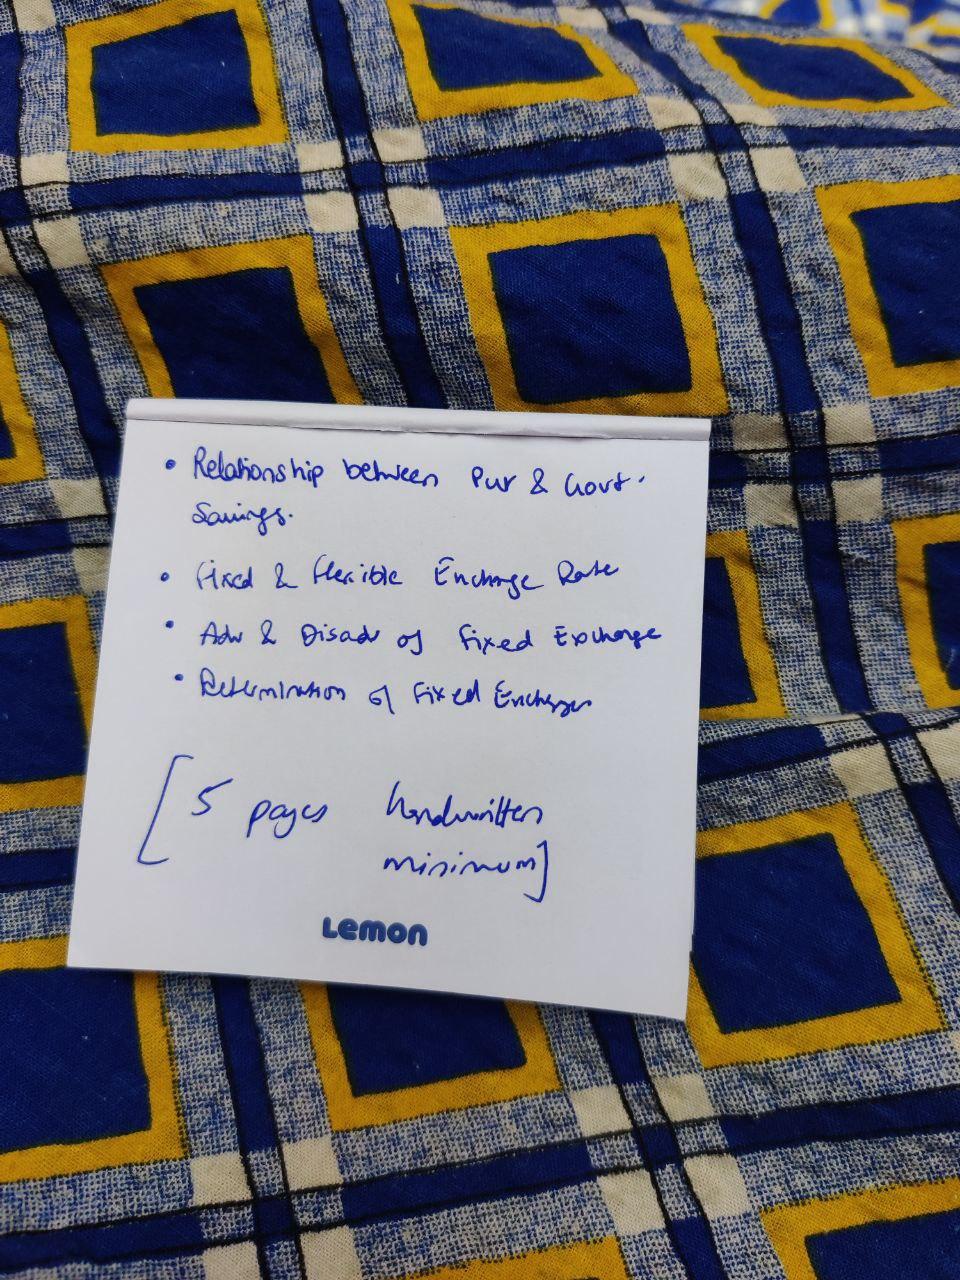 • Relationship between Pvr & Govt.
Savings.
• Fixed & flexible Exchange Rate
• Adv & Disadv of Fixed Exchange
• Determination of Fixed Exchange
[5 pages handwritten
minimum]
Lemon